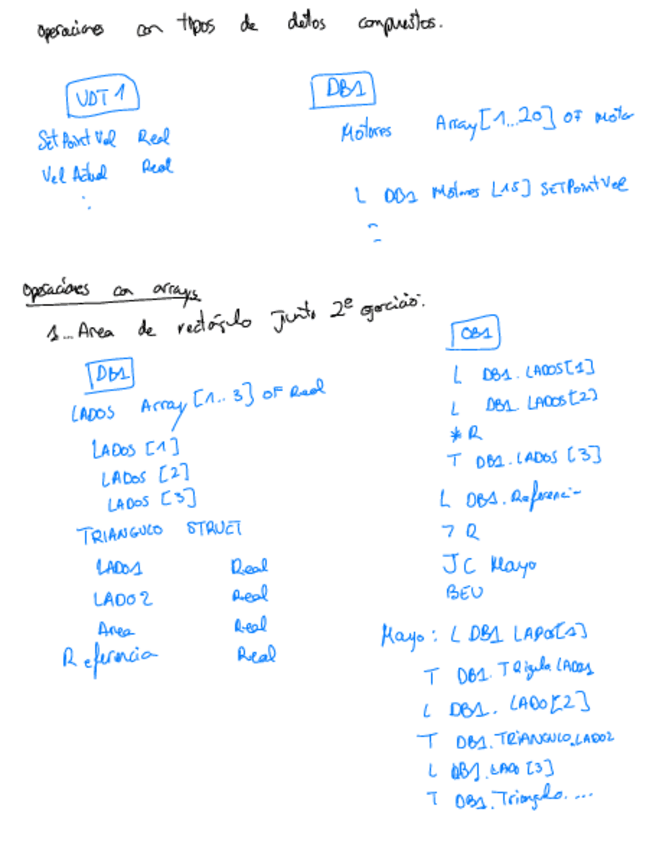 Operaciones con tipos de datos compuestos.
UDT 1
SetPoint Vel Real
Vel Actual Real
:
DB1
Motores Array [1..20] OF Motor
L DB1 Motores [15] SETPointVel
Operaciones con arrays
1... Area de rectángulo junto 2º ejercicio:
DB1
LADOS Array [1..3] OF Real
LADOS [1]
LADOS [2]
LADOS [3]
TRIANGULO STRUCT
LADO1 Real
LADO2 Real
Area Real
Referencia Real
OB1
L DB1. LADOS[1]
L DB1. LADOS[2]
* R
T DB1. LADOS [3]
L DB1. Referenci-
> R
JC Mayo
BEU
Mayo: L DB1 LADOS[1]
T DB1. TRigulo LADO1
L DB1. LADO[2]
T DB1. TRIANGULO.LADO2
L DB1. LADO [3]
T DB1. Triangulo. ...